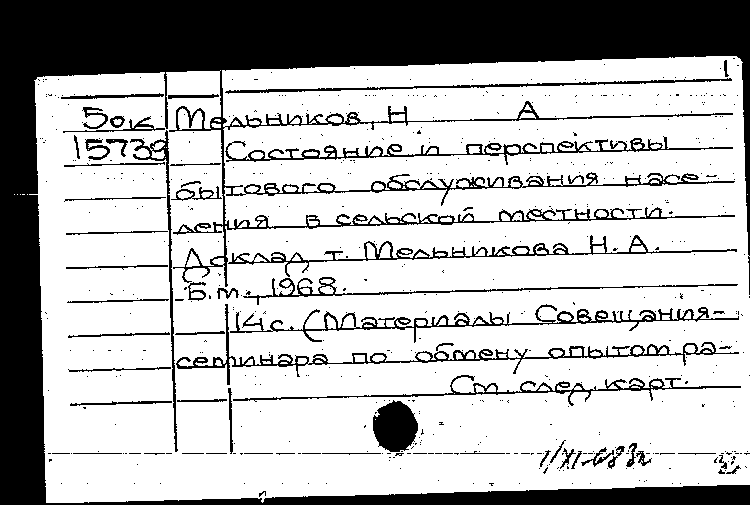 1
5ок Мельников, Н А
15739 Состояние и перспективы
бытового обслуживания насе-
ления в сельской местности.
Доклад т. Мельникова Н. А.
Б.м., 1968.
14с. (Материалы Совещания-
семинара по обмену опытом ра-
См. след. карт.